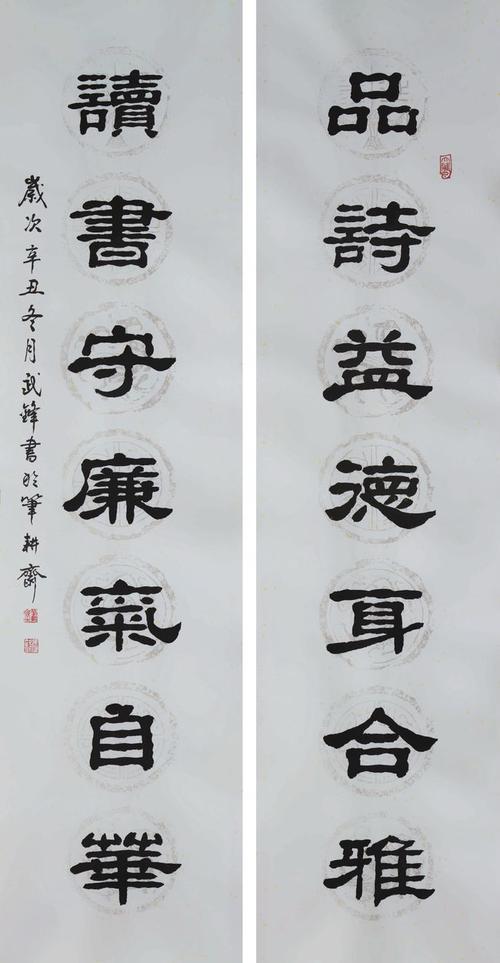 品詩益德耳合雅
讀書守廉氣自華
歲次辛丑冬月武鋒書於筆耕齋